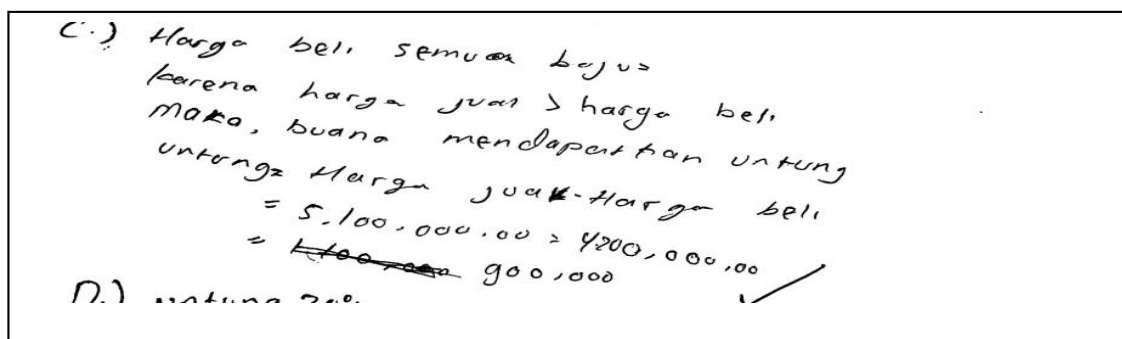 C.) Harga beli semua baju =
karena harga jual > harga beli
maka, buana mendapatkan untung
untung = Harga jual - Harga beli
= 5.100.000.00 = 4200,000,00
= 900,000
D.) untung 20%